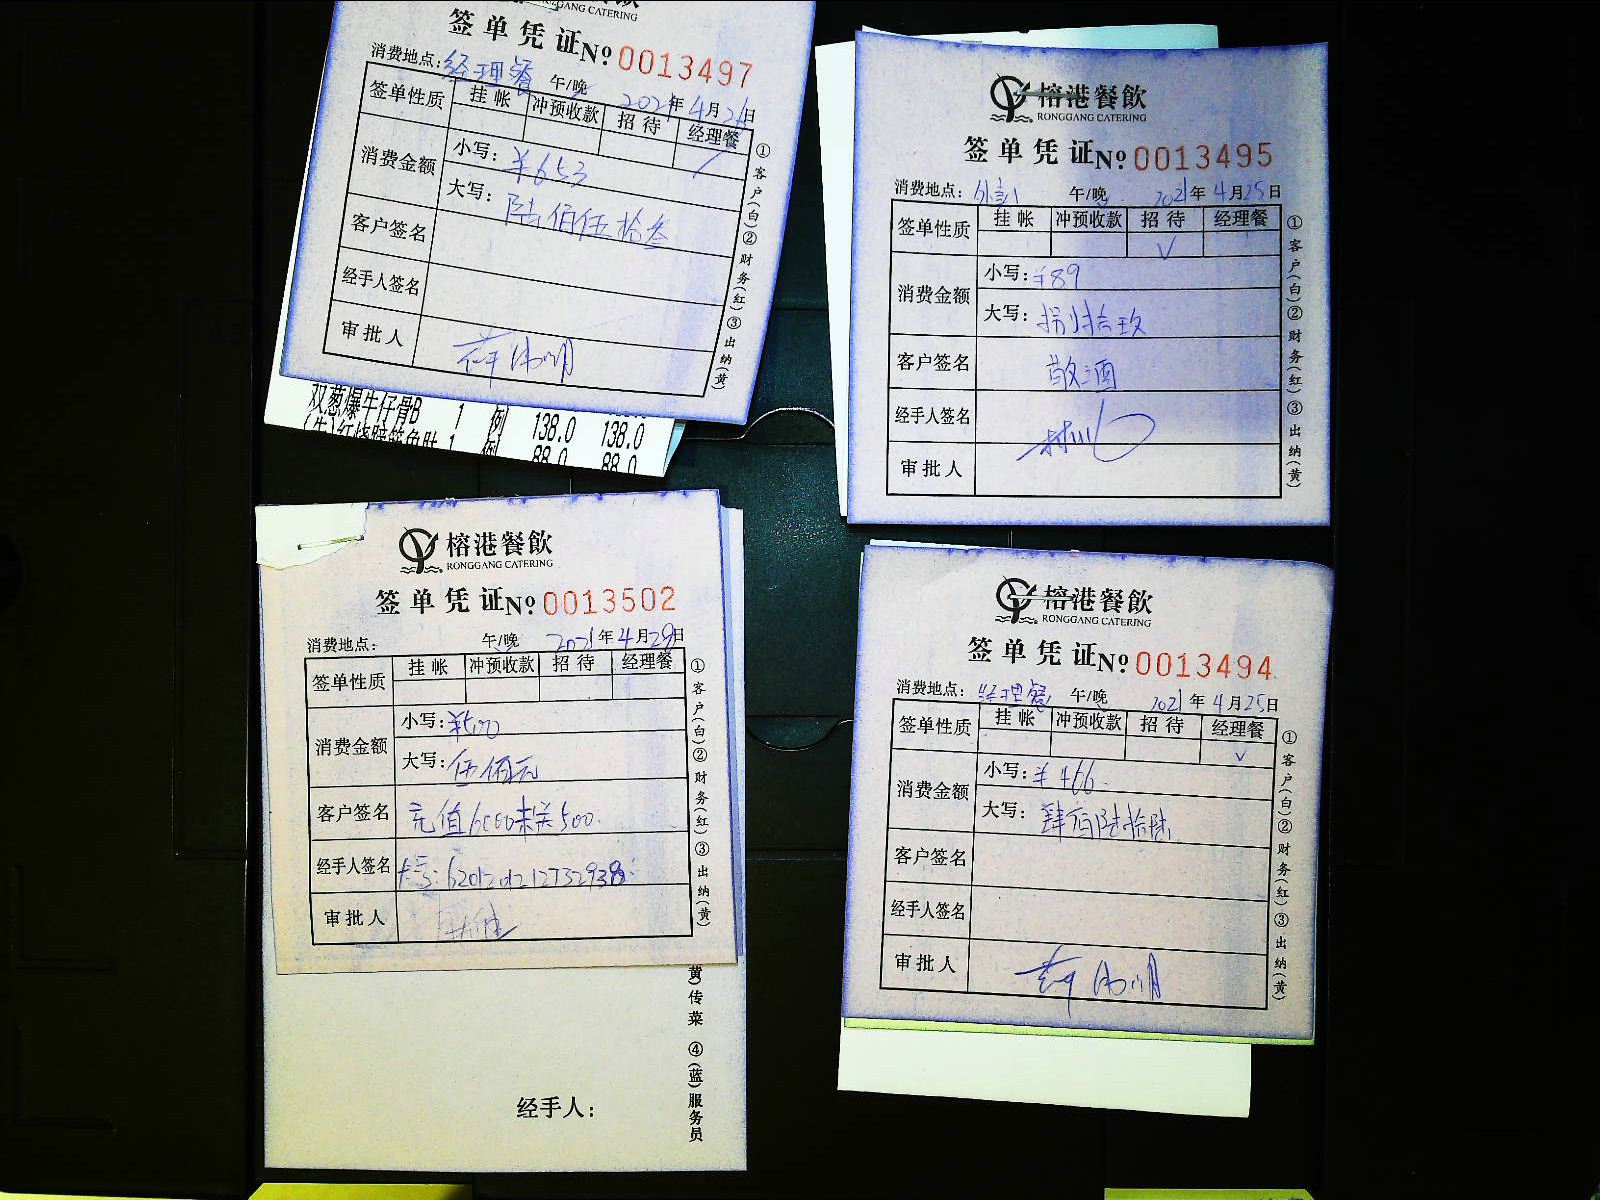 GANG CATERING
签单凭证 № 0013497
消费地点: 经理餐 午/晚 2021年4月26日
签单性质 挂帐 冲预收款 招待 经理餐
消费金额 小写: ¥653
大写: 陆佰伍拾叁
客户签名
经手人签名
审批人
①客户(白)②财务(红)③出纳(黄)
双葱爆牛仔骨B 1 例 138.0 138.0
88.0 88.0
榕港餐飲
RONGGANG CATERING
签单凭证 № 0013495
消费地点: 午/晚 2021年4月25日
签单性质 挂帐 冲预收款 招待 经理餐
√
消费金额 小写: ¥89
大写: 捌拾玖
客户签名 敬酒
经手人签名
审批人
①客户(白)②财务(红)③出纳(黄)
榕港餐飲
RONGGANG CATERING
签单凭证 № 0013502
消费地点: 午/晚 2021年4月29日
签单性质 挂帐 冲预收款 招待 经理餐
消费金额 小写: ¥500
大写: 伍佰元
客户签名 充值6000未送500.
经手人签名
审批人
①客户(白)②财务(红)③出纳(黄)
黄)传菜 ④(蓝)服务员
经手人:
榕港餐飲
RONGGANG CATERING
签单凭证 № 0013494
消费地点: 经理餐 午/晚 2021年4月25日
签单性质 挂帐 冲预收款 招待 经理餐
√
消费金额 小写: ¥466.
大写: 肆佰陆拾陆
客户签名
经手人签名
审批人
①客户(白)②财务(红)③出纳(黄)